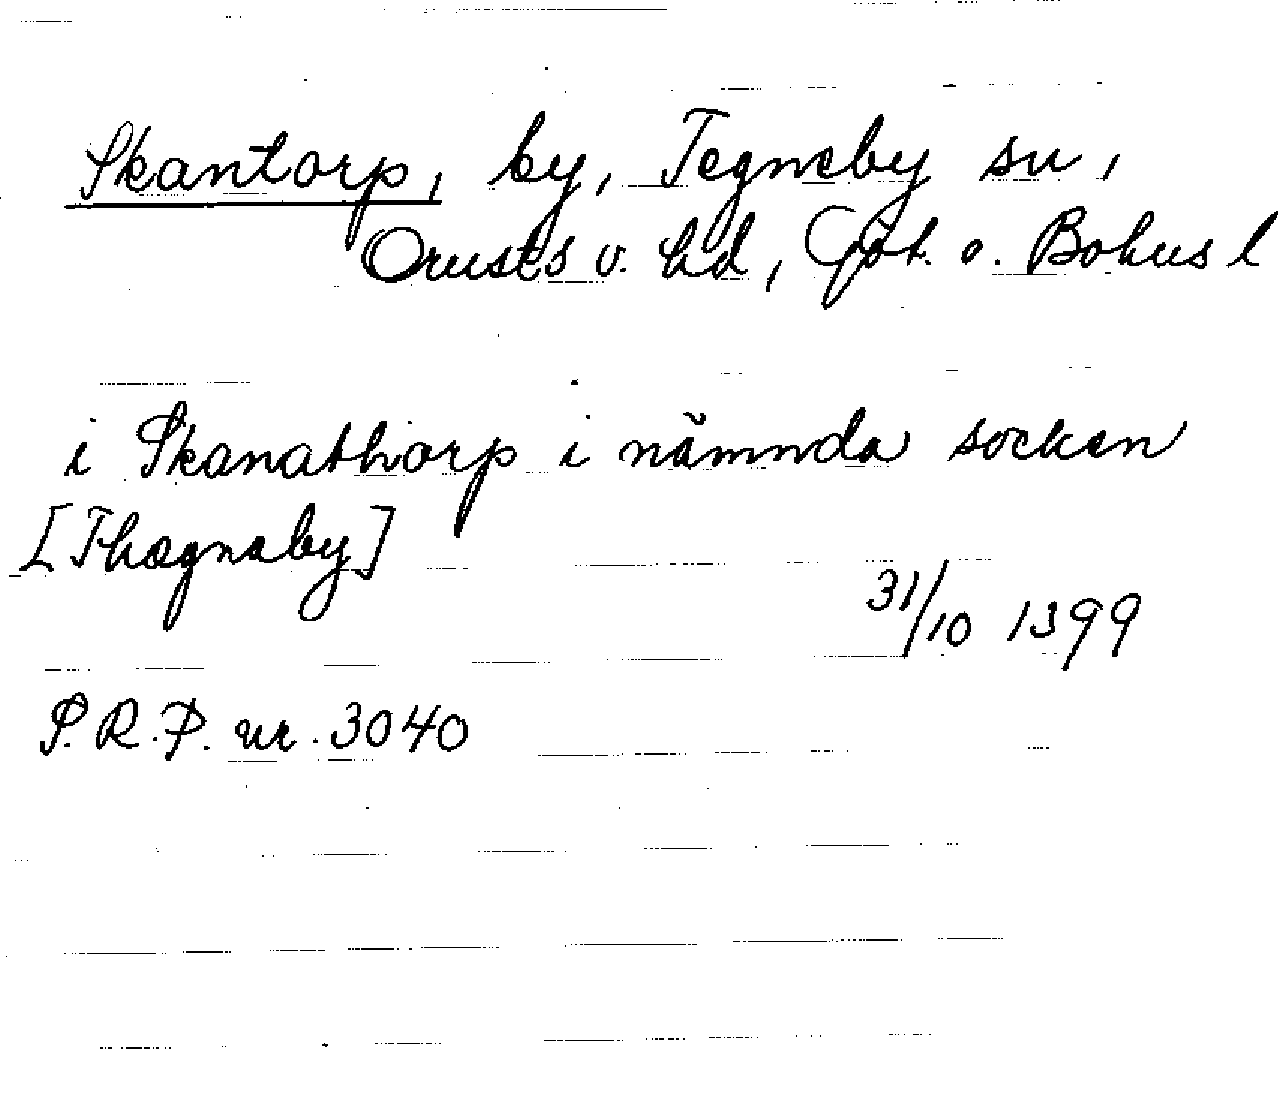 Skantorp, by, Tegneby sn,
Orusts v. hd, Göt. o. Bohus l
i Skanathorp i nämnda socken
[Thægnaby]
31/10 1399
S.R.P. nr. 3040